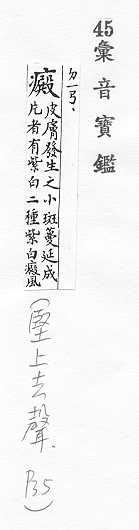 45彙音寶鑑
ㄉㄧㄢˋ
癜 皮膚發生之小斑蔓延成
片者有紫白二種紫白癜風
(堅上去聲. P35)